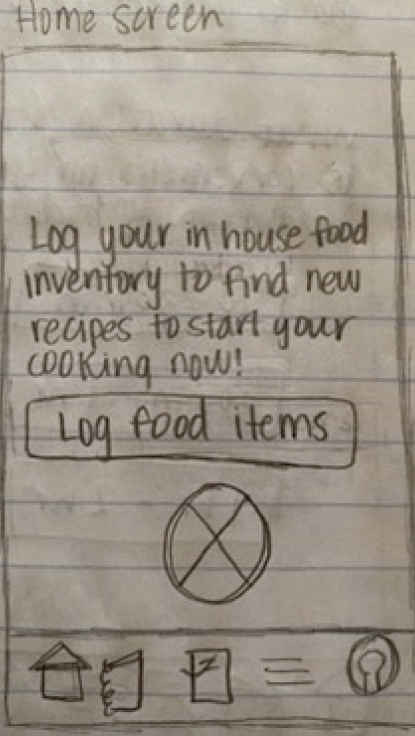 Home Screen
Log your in house food
inventory to find new
recipes to start your
cooking now!
Log food items